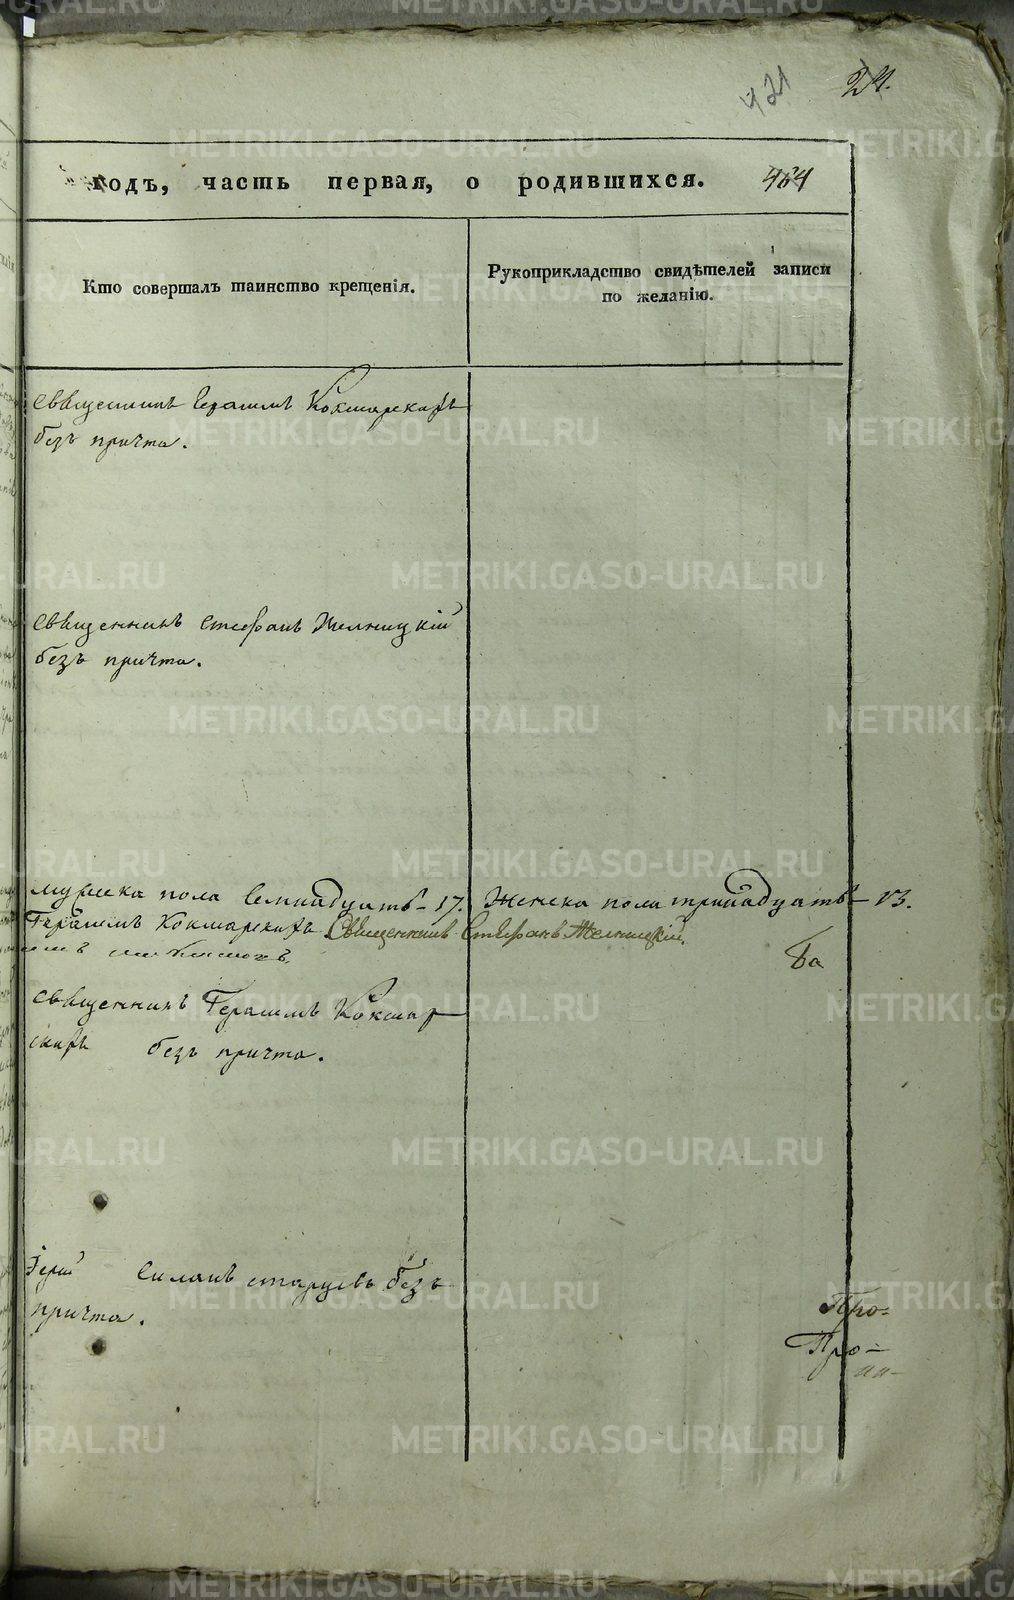 421 24.
годъ, часть первая, о родившихся. 464
Кто совершалъ таинство крещенія.
Рукоприкладство свидѣтелей записи
по желанію.
священникъ Герасимъ Кокшарскихъ
безъ причта.
священникъ Стефанъ Желницкій
безъ причта.
мужеска пола Семнадцать - 17. Женска пола тринадцать - 13.
Герасимъ Кокшарскихъ Священникъ Стефанъ Желницкій
ба
священникъ Герасимъ Кокшар
скихъ безъ причта.
Іерей Силанъ старцевъ безъ
причта.
Про=
Про-
METRIKI.GASO-URAL.RU